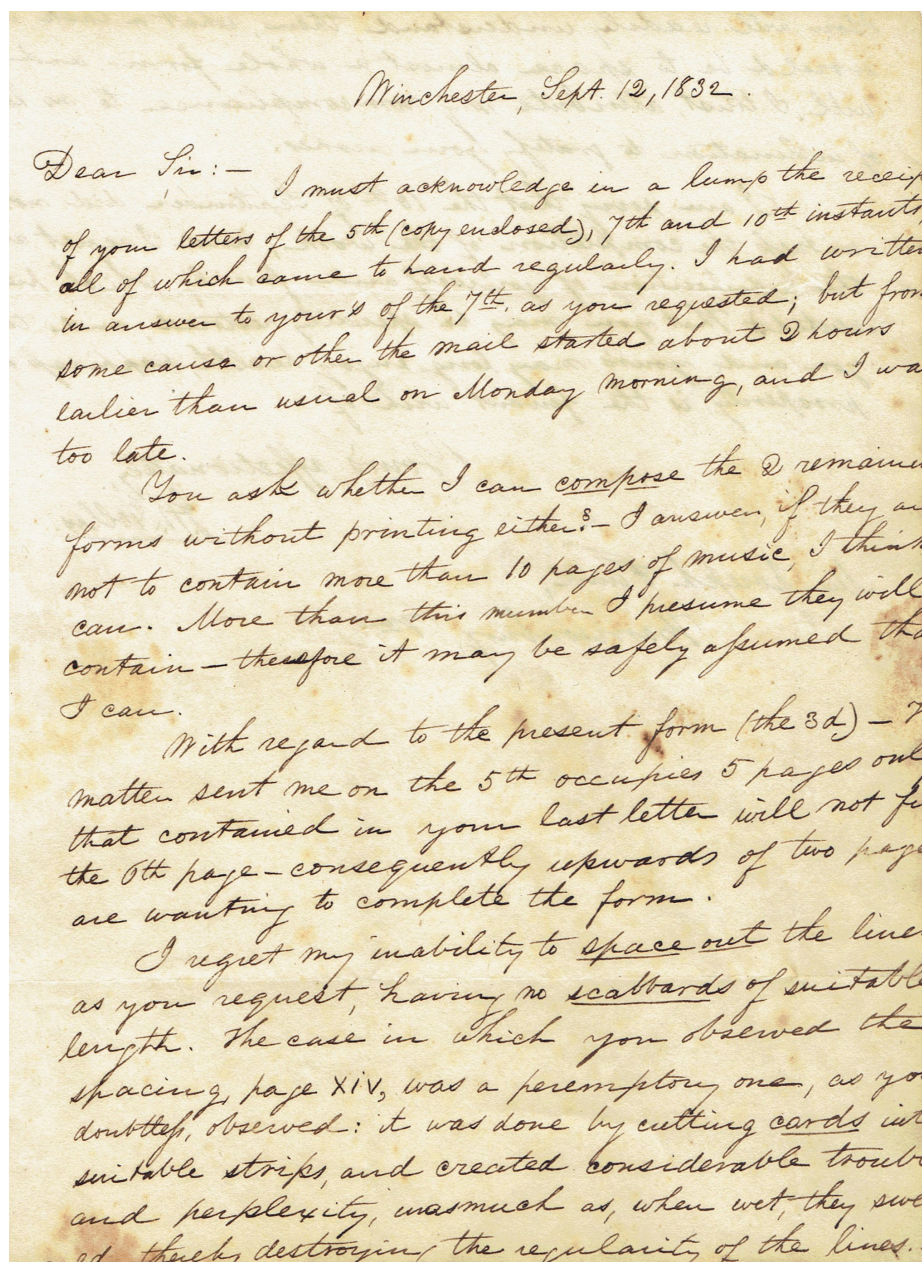 Winchester, Sept. 12, 1832.
Dear Sir:— I must acknowledge in a lump the receip
of your letters of the 5th (copy enclosed), 7th and 10th instants,
all of which came to hand regularly. I had written
in answer to your's of the 7th. as you requested; but from
some cause or other the mail started about 2 hours
earlier than usual on Monday morning, and I wa
too late.
You ask whether I can compose the 2 remainin
forms without printing either?— I answer, if they ar
not to contain more than 10 pages of music, I think
can. More than this number I presume they will
contain — therefore it may be safely assumed tha
I can.
With regard to the present form (the 3d.) — T
matter sent me on the 5th occupies 5 pages only
that contained in your last letter will not fi
the 6th page — consequently upwards of two page
are wanting to complete the form.
I regret my inability to space out the lines
as you request, having no scabbards of suitable
length. The case in which you observed the
spacing, page XIV, was a peremptory one, as you
doubtless, observed: it was done by cutting cards int
suitable strips, and created considerable troubl
and perplexity, inasmuch as, when wet, they swe
ed, thereby destroying the regularity of the lines.